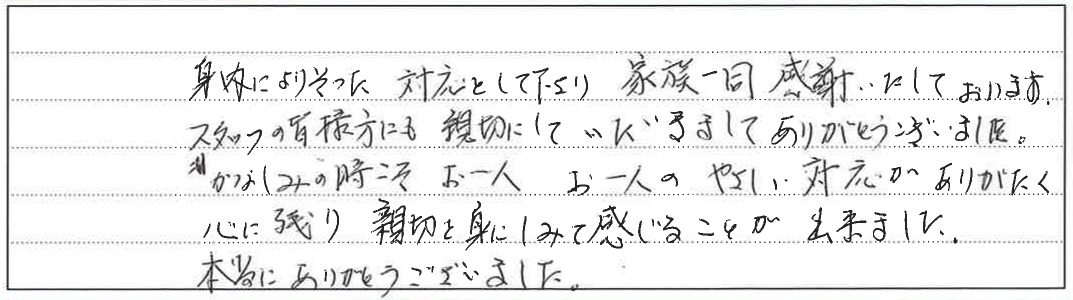 身内によりそった 対応をして下さり 家族一同 感謝いたして おります。
スタッフの皆様方にも 親切にして いただきまして ありがとうございました。
かなしみの時こそ お一人 お一人の やさしい 対応が ありがたく
心に残り 親切を身にしみて感じることが 出来ました。
本当にありがとうございました。